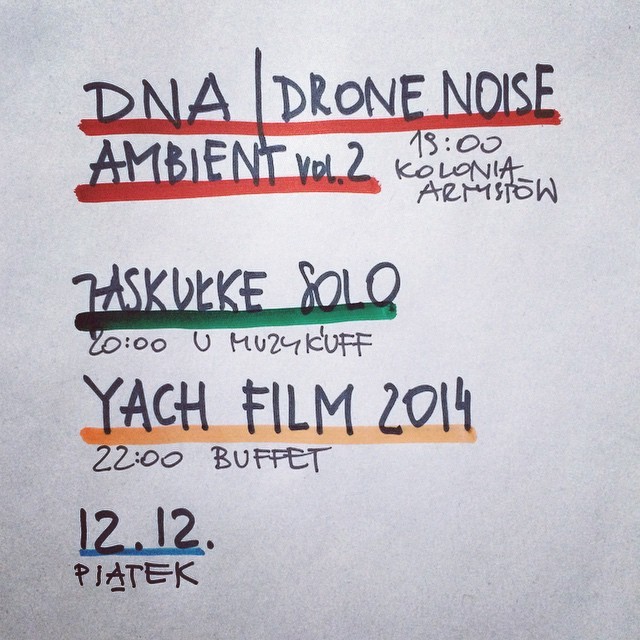 DNA | DRONE NOISE
AMBIENT VOL.2
19:00
KOLONIA
ARTYSTÓW
JASKUŁKE SOLO
20:00 U MUZYKÓFF
YACH FILM 2014
22:00 BUFFET
12.12.
PIĄTEK